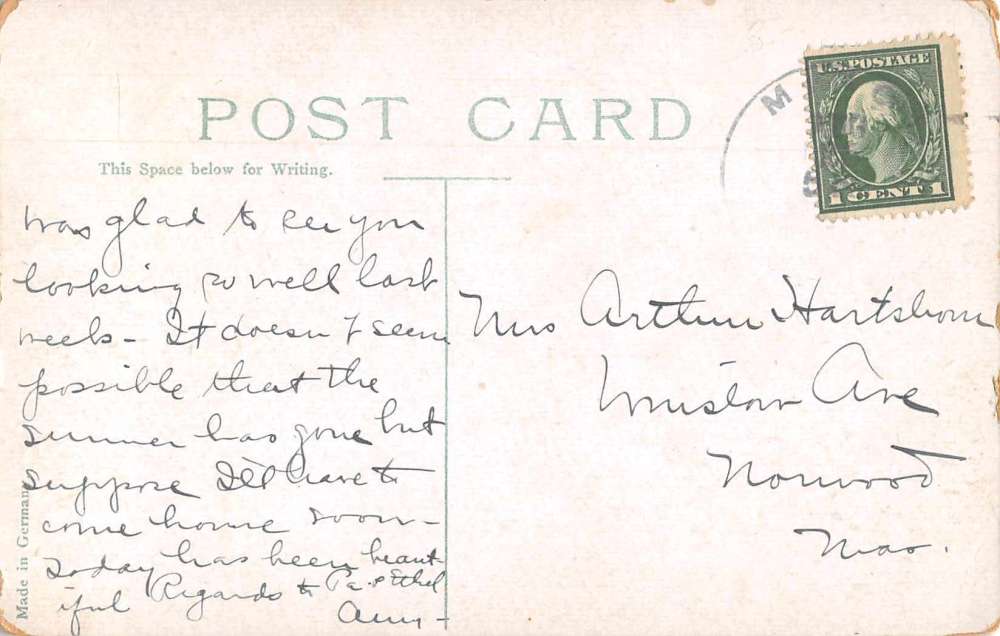 POST CARD
This Space below for Writing.
M
U.S. POSTAGE
1 CENT 1
Was glad to see you
looking so well last
week - It doesn't seem
possible that the
summer has gone but
suppose I'll have to
come home soon -
Today has been beaut
iful Regards to Pa & Ethel
Amy -
Mrs Arthur Hartshorn
Winslow Ave
Norwood
Mas.
Made in Germany